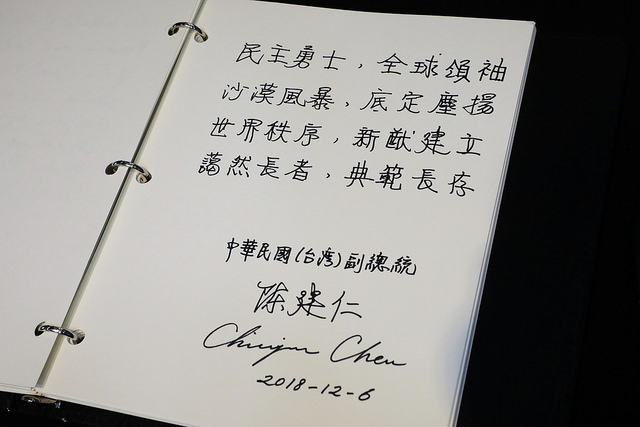 民主勇士，全球領袖
沙漠風暴，底定塵揚
世界秩序，新猷建立
藹然長者，典範長存
中華民國(台灣)副總統
陳建仁
Chienjen Chen
2018-12-6